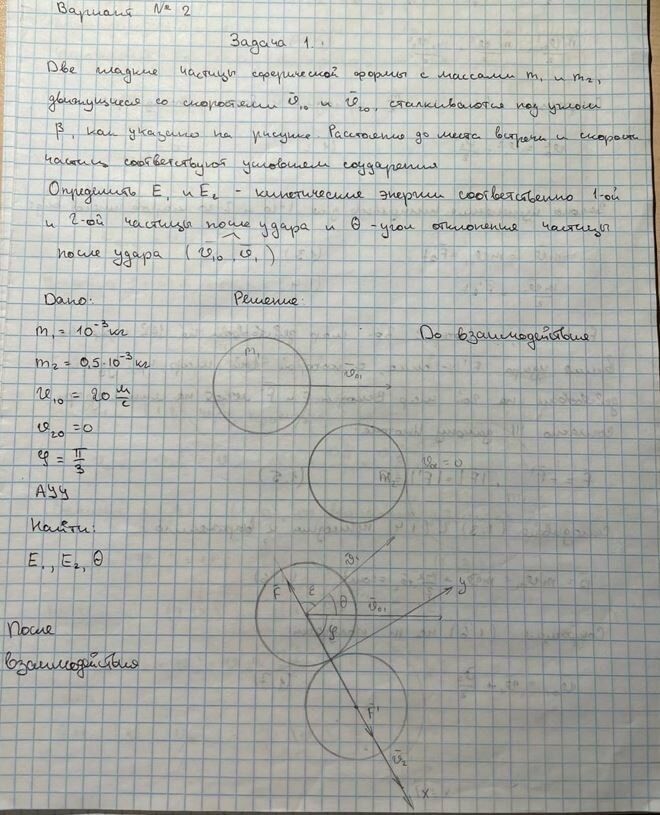 Вариант № 2
Задача 1.
Две гладкие частицы сферической формы с массами m₁ и m₂,
движущиеся со скоростями v̄₁₀ и v̄₂₀, сталкиваются под углом
β, как указано на рисунке. Расстояние до места встречи и скорости
частиц соответствуют условиям соударения
Определить E₁ и E₂ - кинетические энергии соответственно 1-ой
и 2-ой частицы после удара и θ - угол отклонения частицы
после удара (v̄₁₀, v̄₁)
Дано: Решение:
m₁ = 10⁻³ кг m₁ До взаимодействия
m₂ = 0,5·10⁻³ кг
v₁₀ = 20 м/с v̄₀₁
v₂₀ = 0
φ = π/3 m₂ = 0
АУУ
Найти:
E₁, E₂, θ
v̄₁
F̄ ε θ v̄₀₁ y
φ
После
взаимодействия
F̄'
v̄₂
x